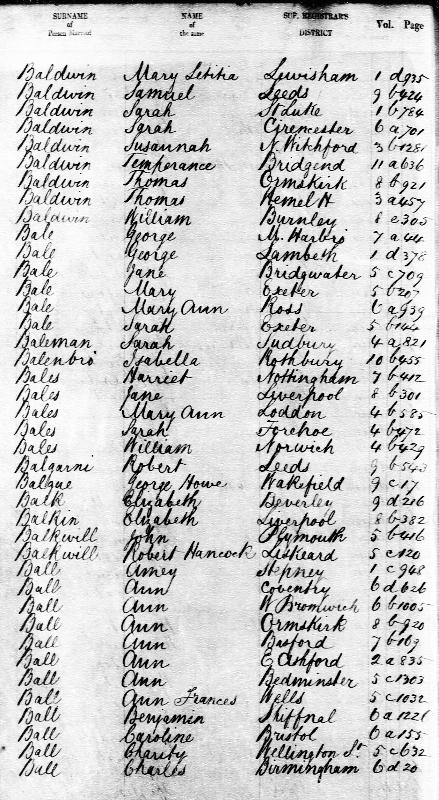 SURNAME of Person Married NAME of the same SUP. REGISTRAR'S DISTRICT Vol. Page
Baldwin Mary Letitia Lewisham 1 d 935
Baldwin Samuel Leeds 9 b 424
Baldwin Sarah St Luke 1 b 784
Baldwin Sarah Cirencester 6 a 701
Baldwin Susannah N. Witchford 3 b 1281
Baldwin Temperance Bridgend 11 a 636
Baldwin Thomas Ormskirk 8 b 921
Baldwin Thomas Hemel H. 3 a 457
Baldwin William Burnley 8 e 305
Bale George M. Harbro 7 a 44
Bale George Lambeth 1 d 378
Bale Jane Bridgwater 5 c 709
Bale Mary Exeter 5 b 207
Bale Mary Ann Ross 6 a 939
Bale Sarah Exeter 5 b 144
Baleman Sarah Sudbury 4 a 821
Balenbro Isabella Rothbury 10 b 455
Bales Harriet Nottingham 7 b 412
Bales Jane Liverpool 8 b 301
Bales Mary Ann Loddon 4 b 585
Bales Sarah Forehoe 4 b 472
Bales William Norwich 4 b 429
Balgarni Robert Leeds 9 b 543
Balgue George Howe Wakefield 9 c 17
Balk Elizabeth Beverley 9 d 216
Balkin Elizabeth Liverpool 8 b 382
Balkwill John Plymouth 5 b 416
Balkwill Robert Hancock Liskeard 5 c 120
Ball Amey Stepney 1 c 948
Ball Ann Coventry 6 d 626
Ball Ann W. Bromwich 6 b 1005
Ball Ann Ormskirk 8 b 920
Ball Ann Basford 7 b 169
Ball Ann E. Ashford 2 a 835
Ball Ann Bedminster 5 c 1303
Ball Ann Frances Wells 5 c 1032
Ball Benjamin Shiffnal 6 a 1221
Ball Caroline Bristol 6 a 155
Ball Charity Wellington St. 5 c 632
Ball Charles Birmingham 6 d 20